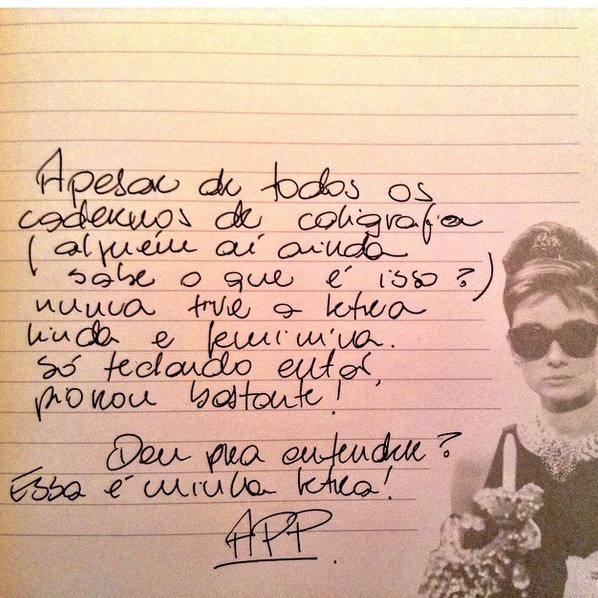 Apesar de todos os
cadernos de caligrafia
(alguém aí ainda
sabe o que é isso?)
nunca tive a letra
linda e feminina.
só teclando então,
piorou bastante!
Deu pra entender?
Essa é minha letra!
APP